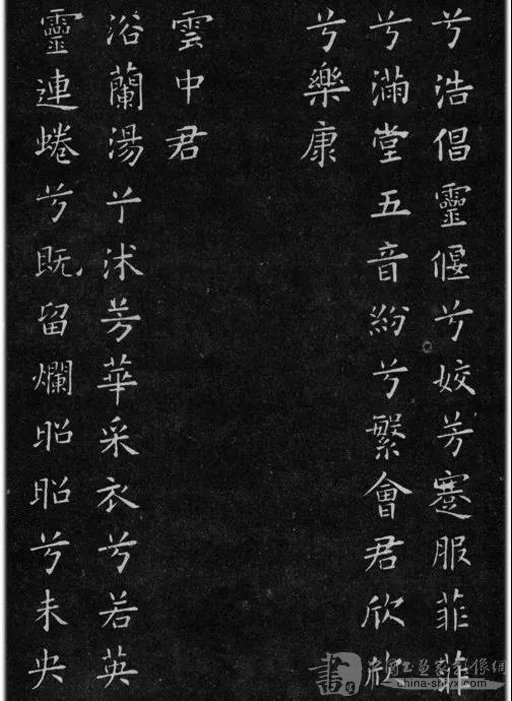 兮浩倡靈偃兮姣芳蹇服菲菲
兮滿堂五音紛兮繁會君欣欣
兮樂康
雲中君
浴蘭湯兮沭芳華采衣兮若英
靈連蜷兮既留爛昭昭兮未央
書
china-shyx.com